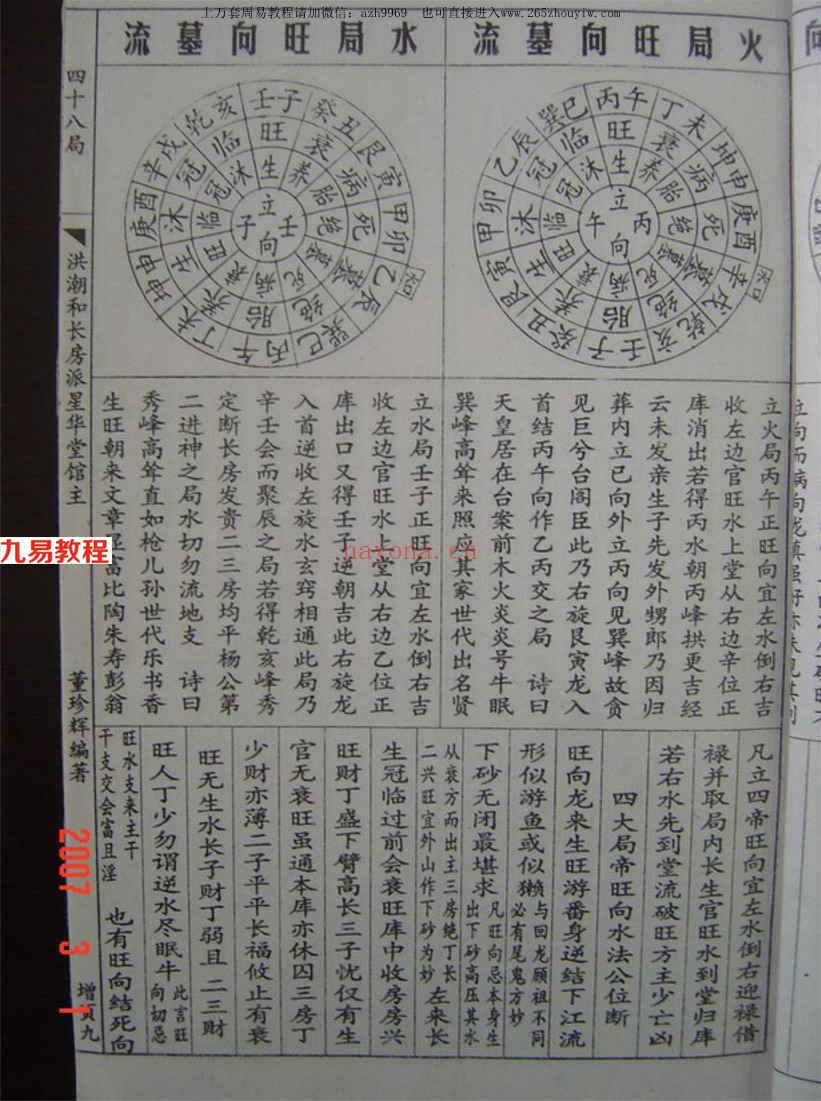 上万套周易教程请加微信：azh9969 也可直接进入www.265zhouyifw.com
火局旺向墓流
水局旺向墓流
四十八局
洪潮和长房派星华堂馆主
董珍辉编著
增页九
立向
丙
午
生养胎绝墓死病衰旺临冠沐
旺衰病死墓绝胎养生沐冠临
丙午
丁未
坤申
庚酉
辛戌
乾亥
壬子
癸丑
艮寅
甲卯
乙辰
巽巳
水口
立向
壬
子
生养胎绝墓死病衰旺临冠沐
旺衰病死墓绝胎养生沐冠临
壬子
癸丑
艮寅
甲卯
乙辰
巽巳
丙午
丁未
坤申
庚酉
辛戌
乾亥
水口
立火局丙午正旺向宜左水倒右吉
收左边官旺水上堂从右边辛位正
库消出若得丙水朝丙峰拱更吉经
云未发亲生子先发外甥郎乃因归
葬内立巳向外立丙向见巽峰故贪
见巨兮台阁臣此乃右旋艮寅龙入
首结丙午向作乙丙交之局 诗曰
天皇居在台案前木火炎炎号牛眠
巽峰高耸来照应其家世代出名贤
立水局壬子正旺向宜左水倒右吉
收左边官旺水上堂从右边乙位正
库出口又得壬子逆朝吉此右旋龙
入首逆收左旋水玄窍相通此局乃
辛壬会而聚辰之局若得乾亥峰秀
定断长房发贵二三房均平杨公第
二进神之局水切勿流地支 诗曰
秀峰高耸直如枪儿孙世代乐书香
生旺朝来文章显富比陶朱寿彭翁
凡立四帝旺向宜左水倒右迎禄借
禄并取局内长生官旺水到堂归库
若右水先到堂流破旺方主少亡凶
四大局帝旺向水法公位断
旺向龙来生旺游番身逆结下江流
形似游鱼或似獭 与回龙顾祖不同必有尾鬼方妙
下砂无闭最堪求 凡旺向忌本身生出下砂高压其水
从衰方而出主三房绝丁长二兴旺宜外山作下砂为妙 左来长
生冠临过前会衰旺库中收房房兴
旺财丁盛下臂高长三子忧仅有生
官无衰旺虽通本库亦休囚三房丁
少财亦薄二子平平长福攸止有衰
旺无生水长子财丁弱且二三财
旺人丁少勿谓逆水尽眠牛 此言旺向切忌
旺水支来主干干支交会富且淫 也有旺向结死向
九易教程
nayona.cn
2007 3 1